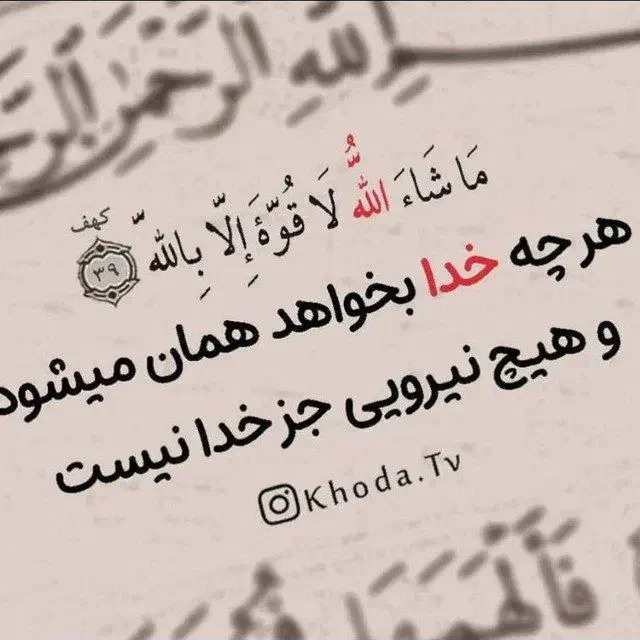 لِلَّهِ الرَّحْمٰنِ الرَّ
مَا شَاءَ اللَّهُ لَا قُوَّةَ إِلَّا بِاللَّهِ
کهف
۳۹
هر چه خدا بخواهد همان میشود
و هیچ نیرویی جز خدا نیست
Khoda.Tv
فَأَلْهَمَهَا